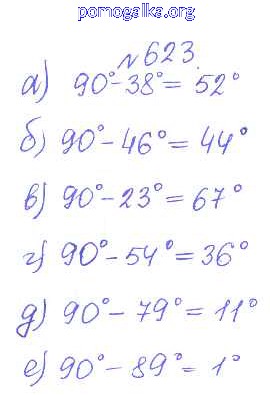 pomogalka.org
№623.
а) 90°-38°= 52°
б) 90°-46°= 44°
в) 90°-23°= 67°
г) 90°-54°=36°
д) 90°-79°=11°
е) 90°-89°= 1°